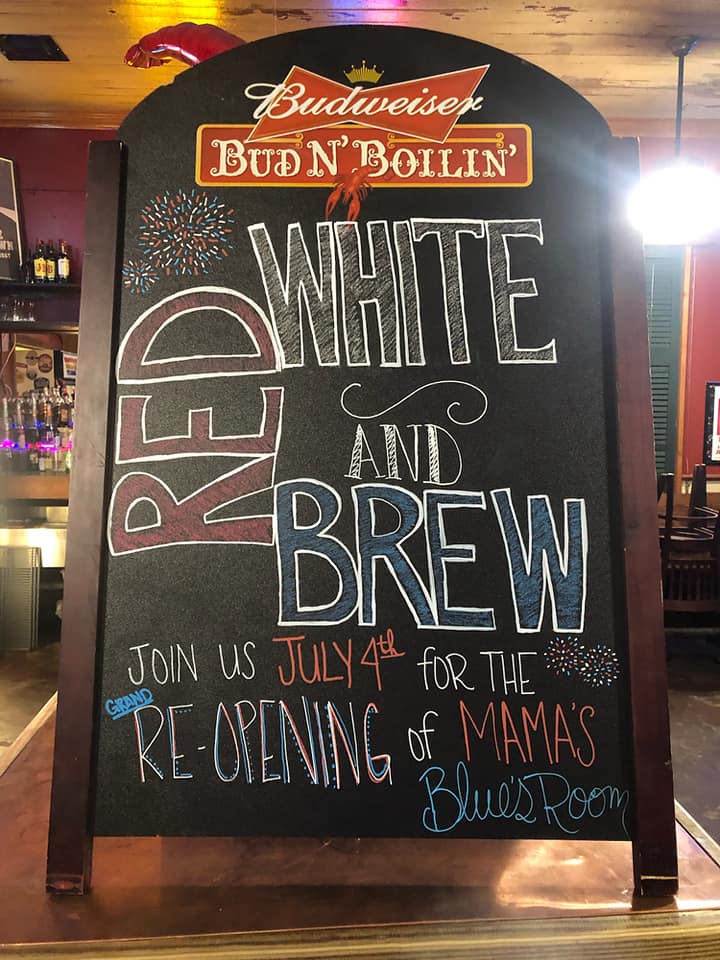 Budweiser
BUD N' BOILIN'
RED
WHITE
AND
BREW
JOIN US JULY 4th FOR THE
GRAND
RE-OPENING of MAMA'S
Blue's Room